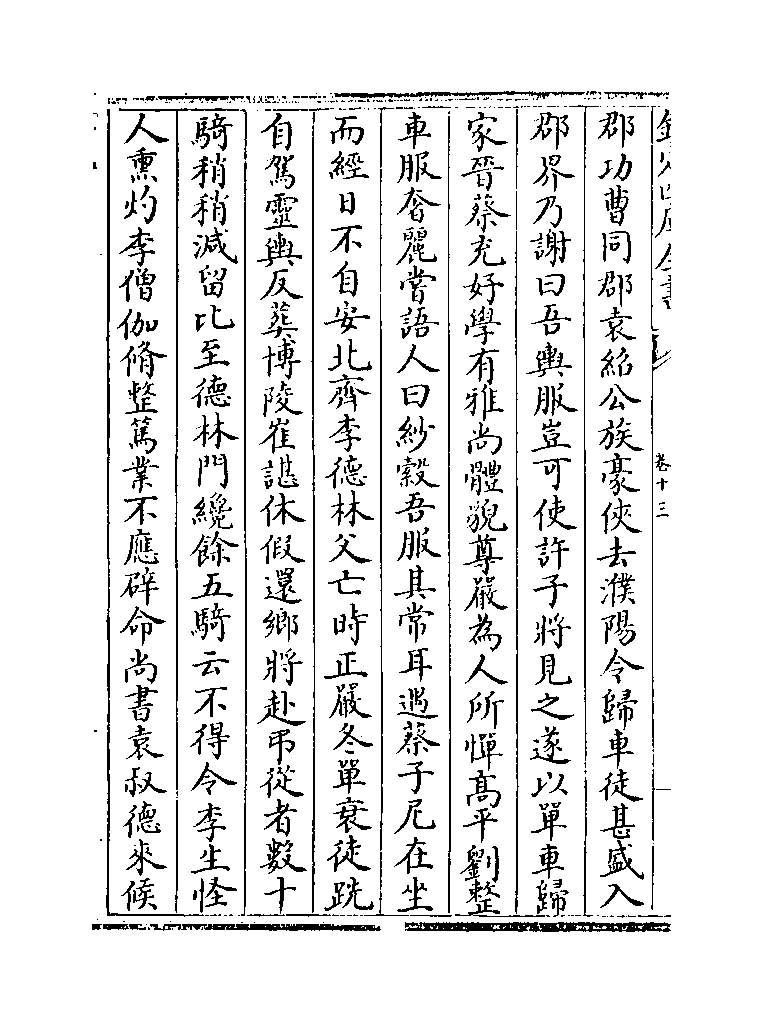 欽定四庫全書
卷十三
郡功曹同郡袁紹公族豪俠去濮陽令歸車徒甚盛入
郡界乃謝曰吾輿服豈可使許子將見之遂以單車歸
家晉蔡充好學有雅尚體貌尊嚴為人所憚高平劉整
車服奢麗嘗語人曰紗縠吾服其常耳過蔡子尼在坐
而經日不自安北齊李德林父亡時正嚴冬單衰徒跣
自駕靈輿反葬博陵崔諶休假還鄉將赴弔從者數十
騎稍稍減留比至德林門纔餘五騎云不得令李生怪
人熏灼李僧伽脩整篤業不應辟命尚書袁叔德來候